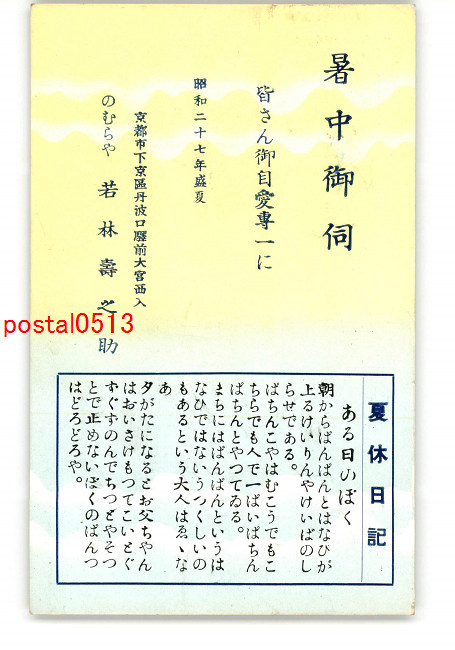 暑中御伺
皆さん御自愛專一に
昭和二十七年盛夏
京都市下京區丹波口驛前大宮西入
のむらや 若林壽之助
postal0513
夏休日記
ある日のぼく
朝からぱんぱんとはなびが
上るけいりんやけいばのし
らせである。
ぱちんこやはむこうでもこ
ちらでも人で一ぱいぱちん
ぱちんとやつてゐる。
まちにはぱんぱんというは
なひではないうつくしいの
もあるという大人はゑゝな
あ
夕がたになるとお父ちやん
はおいさけもつてこいとぐ
すぐすのんでちつとやそつ
とで止めないぼくのぱんつ
はどろどろや。